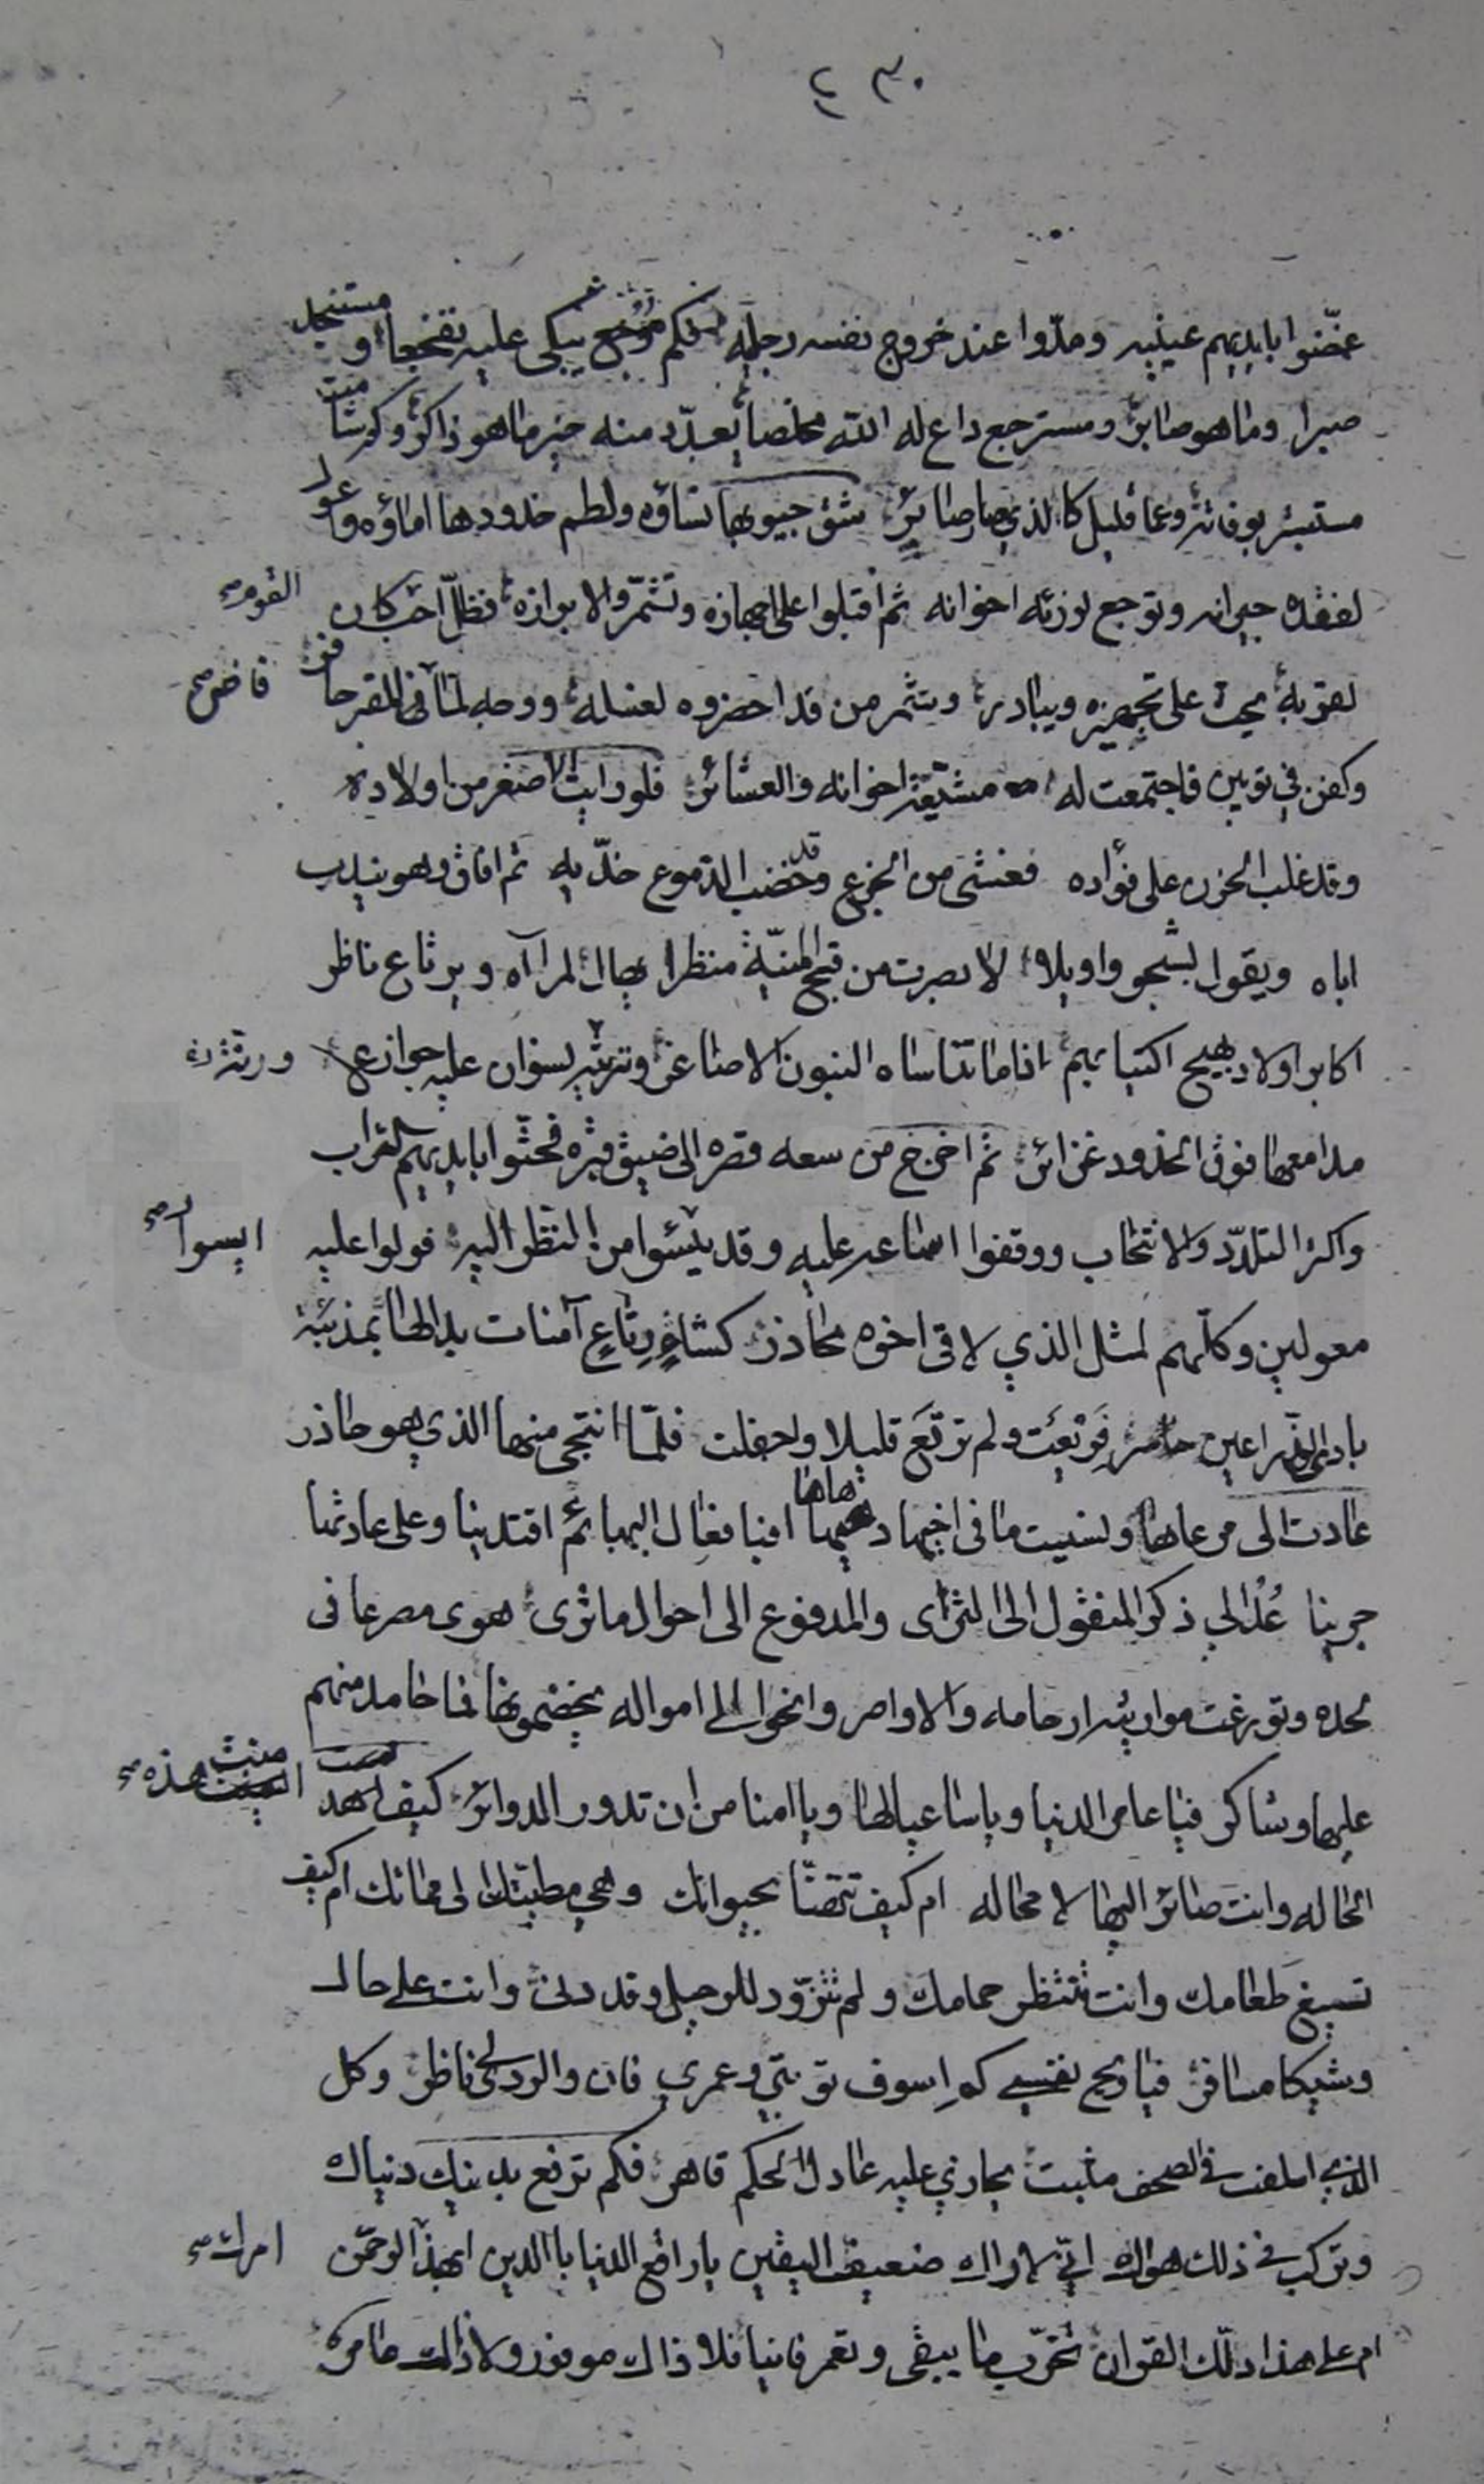 ٤٣٠
غمّضوا بايديهم عينيه ومدّوا عند خروج نفسه رجليه فكم موجع يبكى عليه تفجعا و مستنجد
صبرا وما هو صابر ومسترجع داع له الله مخلصا يعدّد منه خير ما هو ذاكر وكم شامت
مستبشر بوفاته وعما قليل كالذى صار صائر شق جيوبها نساؤه ولطم خدودها اماؤه واعول
لفقده جيرانه وتوجع لرزئه اخوانه ثم اقبلوا على جهازه وتشمّروا لابرازه فظلّ احب كان القوم
لقربه يحث على تجهيزه ويبادر وشمر من قد احضروه لغسله ووجه لمّا فاض للقبر حافر
فاض
وكفن في ثوبين فاجتمعت له مشيّعة اخوانه والعشائر فلو رايت الاصغر من اولاده
وقد غلب الحزن على فؤاده فغشى من الجزع وقد خضب الدّموع خدّيه ثم افاق وهو يندب
اباه ويقول بشجو واويلاه لابصرت من قبح المنيّة منظرا يهال لمراآه ويرتاع ناظر
اكابر اولاد يهيج اكتيابهم اذا ما تناساه البنون الاصاغر ورنّة نسوان عليه جوازع
مدامعها فوق الخدود غزائر ثم اخرج من سعه قصره الى ضيق قبره فحثّوا بايديهم التراب
واكثر التلدّد والانتحاب ووقفوا ساعه عليه وقد يئسوا من النظر اليه فولوا عليه
ايسوا
معولين وكلّهم لمثل الذي لاقى اخوه محاذر كشاءٍ رتاعٍ آمنات بدا لها بمذئبة
بادى الذّراعين حاسر فريعت ولم ترتع قليلا واجفلت فلمّا انتحى منها الذي هو حاذر
عادت الى مرعاها ونسيت ما فى اختها دهاها افبافعال البهائم اقتدينا وعلى عادتها
جرينا عُد الي ذكر المنقول الى الثرى والمدفوع الى احوال ما ترى هوى مصرعا فى
لحده وتوزعت مواريثه ارحامه والاواصر وانحوا الى امواله يخضمونها فما حامد منهم
عليها وشاكر فيا عامر الدنيا ويا ساعيا لها ويا امنا من ان تدور الدوائر كيف امنت هذه
الحاله وانت صائر اليها لا محاله ام كيف تتهنّا بحيواتك وهي مطيّتك الى مماتك ام كيف
تسيغ طعامك وانت تنتظر حمامك ولم تتزوّد للرحيل وقد دنى وانت على حال
وشيكا مسافر فياويح نفسى كم اسوف توبتي وعمري فان والردى لى ناظر وكل
الذي اسلفت في الصحف مثبت يجازي عليه عادل الحكم قاهر فكم ترقع بدينك دنياك
وتركب في ذلك هواك انّي لاراك ضعيف اليقين يا راقع الدنيا بالدين ابهذا الرحمن
امرك
ام على هذا دلّك القران تخرّب ما يبقى وتعمر فانيا فلا ذاك موفور ولا ذاك عامر